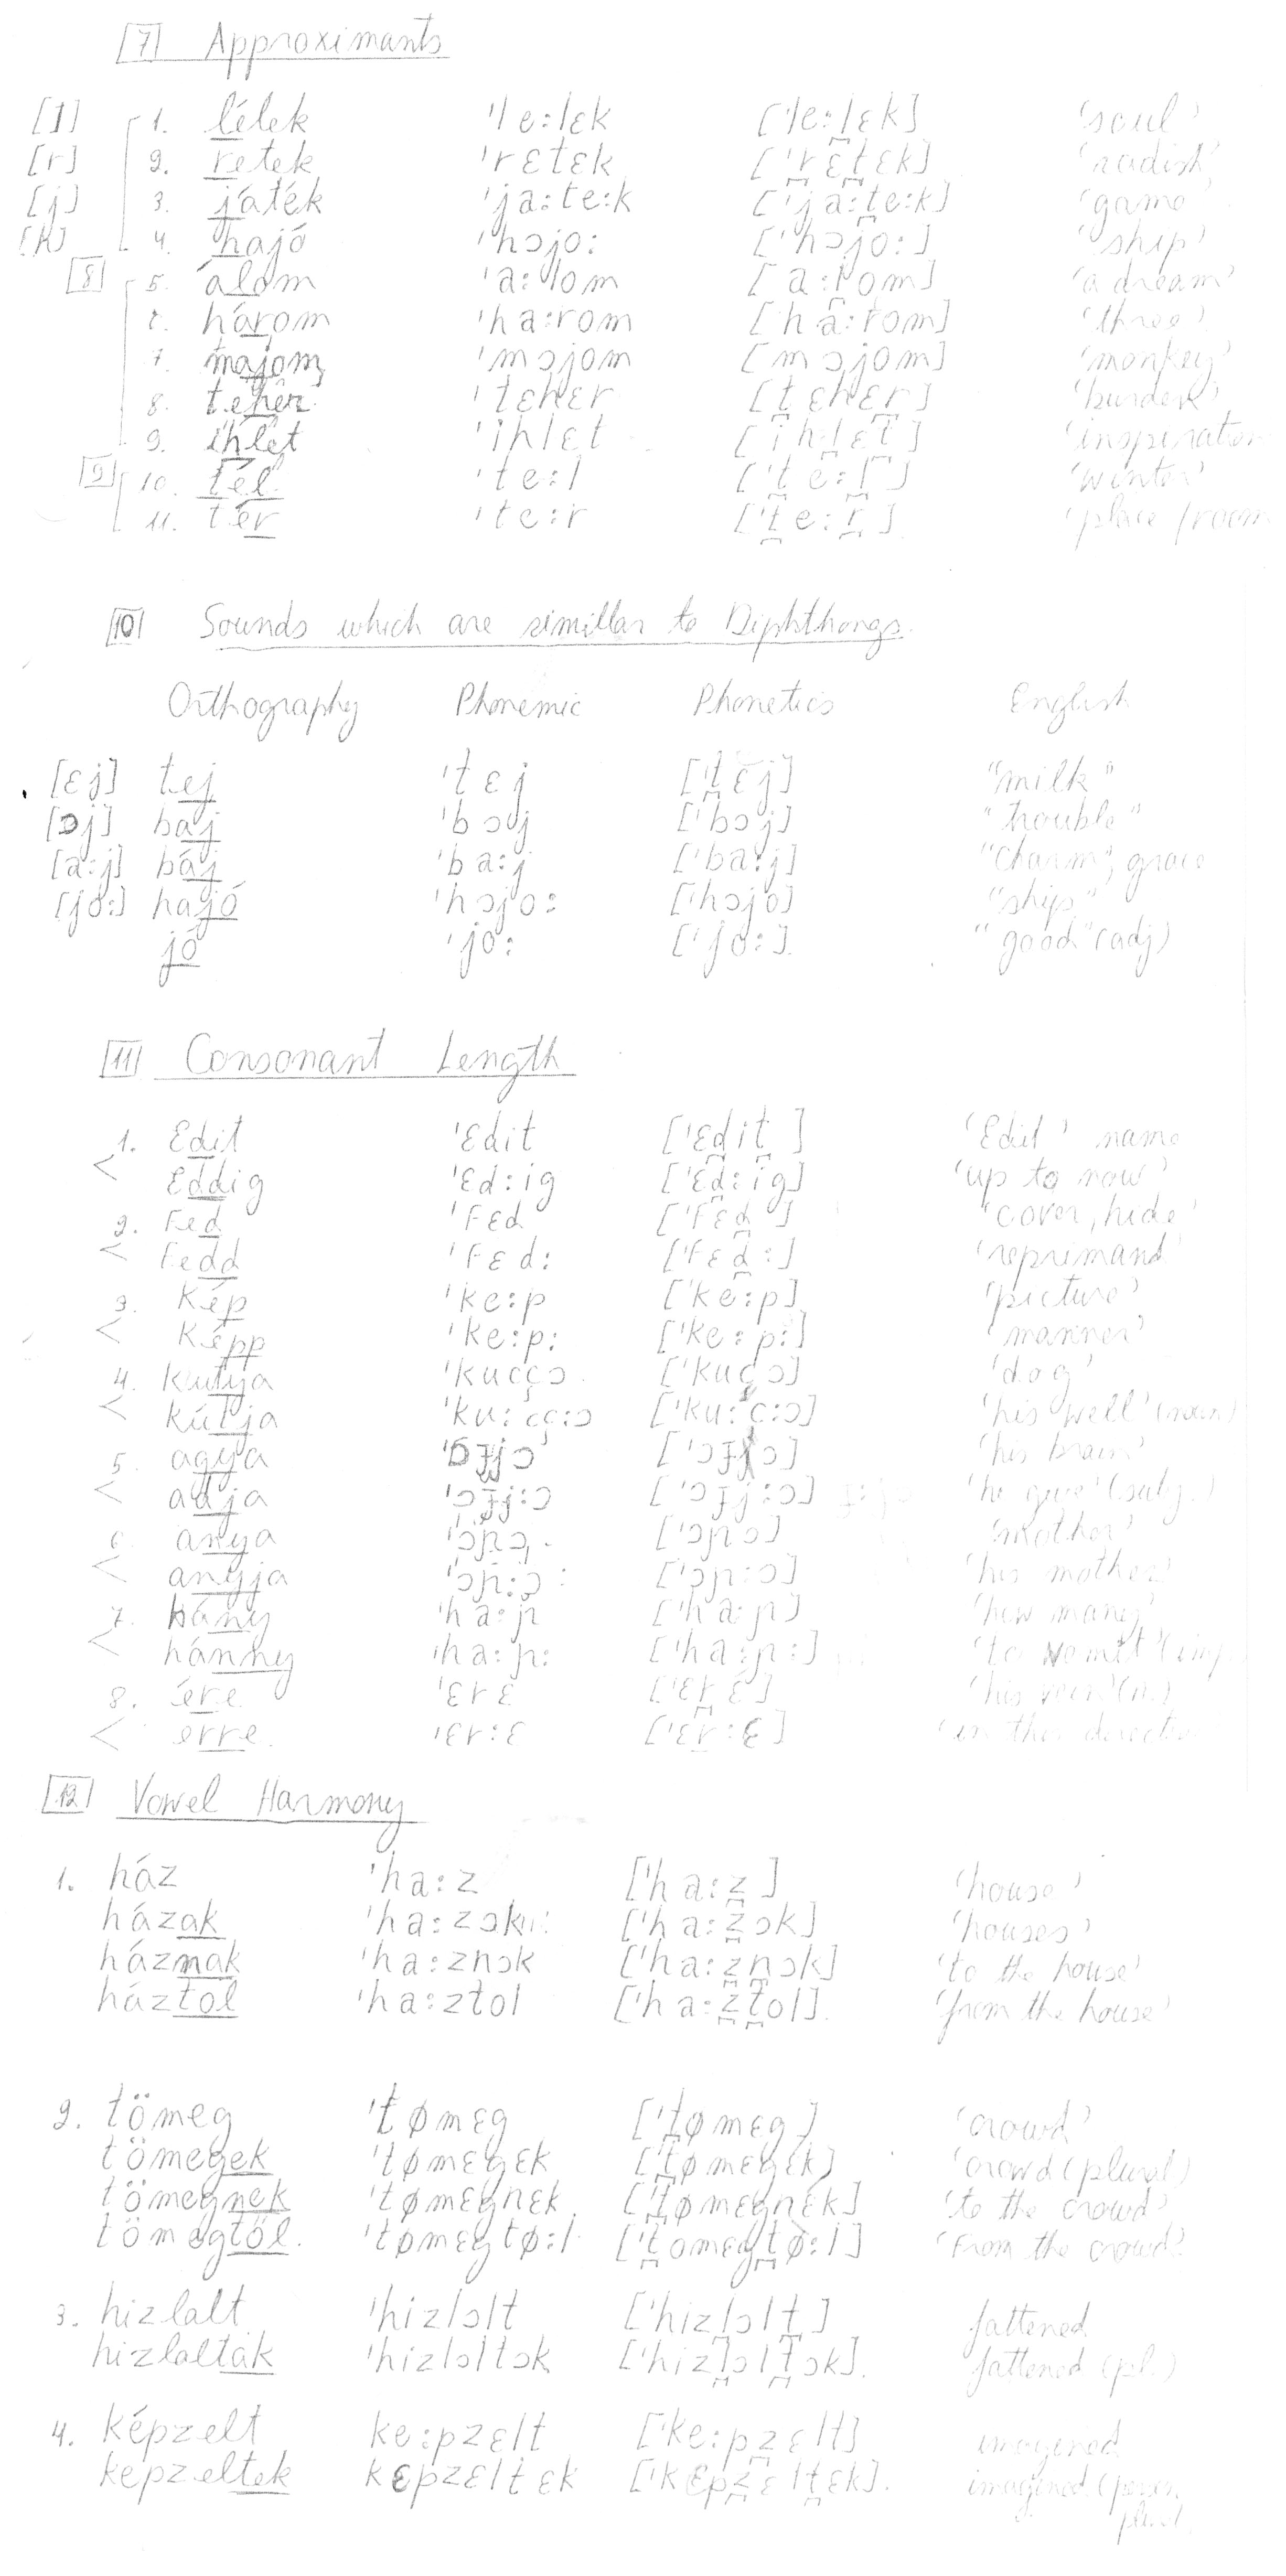 [7] Approximants
[l] 1. lélek 'le:lɛk ['le:l̪ɛk] 'soul'
[r] 2. retek 'rɛtɛk ['r̪ɛt̪ɛk] 'radish'
[j] 3. játék 'ja:te:k ['ja:t̪e:k] 'game'
[h] 4. hajó 'hɔjo: ['hɔjo:] 'ship'
[8] 5. álom 'a:lom [a:l̪om] 'a dream'
három 'ha:rom [ha:rom] 'three'
7. majom 'mɔjom [mɔjom] 'monkey'
8. teher 'tɛhɛr [t̪ɛhɛr̪] 'burden'
9. ihlet 'ihlɛt ['ihl̪ɛt̪] 'inspiration
[9] 10. tél 'te:l ['t̪e:l̪] 'winter'
11. tér 'te:r ['t̪e:r̪] 'place /room
[10] Sounds which are simillar to Diphthongs.
Orthography Phonemic Phonetics English
[ɛj] tej 'tɛj ['t̪ɛj] "milk"
[ɔj] baj 'bɔj ['bɔj] "trouble"
[a:j] báj 'ba:j ['ba:j] "charm", grace
[jo:] hajó 'hɔjo: ['hɔjo] "ship"
jó 'jo: ['jo:] "good" (adj)
[11] Consonant Length
1. Edit 'ɛdit ['ɛd̪it̪] 'Edit' name
< Eddig 'ɛd:ig ['ɛd̪:ig] 'up to now'
2. Fed 'Fɛd ['Fɛd̪] 'cover, hide'
< Fedd 'Fɛd: ['Fɛd̪:] 'reprimand'
3. Kép 'ke:p ['ke:p] 'picture'
< Képp 'ke:p: ['ke:p:] 'manner'
4. kutya 'kucçɔ ['kuçɔ] 'dog'
< kútja 'ku:cç:ɔ ['ku:c:ɔ] 'his well' (noun)
5. agya ['ɔɟɔ] 'his brain'
< adja 'ɔɟj:ɔ ['ɔɟj:ɔ] 'he give' (subj.)
6. anya 'ɔɲɔ ['ɔɲɔ] 'mother'
< anyja 'ɔɲ:ɔ ['ɔɲ:ɔ] 'his mother'
7. hány 'ha:ɲ ['ha:ɲ] 'how many'
< hánny 'ha:ɲ: ['ha:ɲ:] 'to vomit' (imp.
8. ére 'ɛrɛ ['ɛr̪ɛ] 'his vein' (n.)
< erre 'ɛr:ɛ ['ɛr:ɛ] 'in this direction'
[12] Vowel Harmony
1. ház 'ha:z ['ha:z̪] 'house'
házak 'ha:zɔk ['ha:z̪ɔk] 'houses'
háznak 'ha:znɔk ['ha:z̪n̪ɔk] 'to the house'
háztol 'ha:ztol ['ha:z̪t̪ol]. 'from the house'
2. tömeg 'tømɛg ['t̪ømɛg] 'crowd'
tömegek 'tømɛgɛk ['t̪ømɛgɛk] 'crowd (plural)
tömegnek 'tømɛgnɛk ['t̪ømɛgnɛk] 'to the crowd'
tömegtöl. 'tømɛgtø:l ['t̪omɛgt̪ø:l] 'From the crowd'
3. hizlalt 'hizlɔlt ['hizl̪ɔlt̪] fattened
hizlaltak 'hizlɔltɔk ['hizl̪ɔlt̪ɔk]. fattened (pl.)
4. képzelt ke:pzɛlt ['ke:pz̪ɛlt] imagened
kepzeltek kɛpzɛltɛk ['kɛpz̪ɛlt̪ɛk]. imagened (